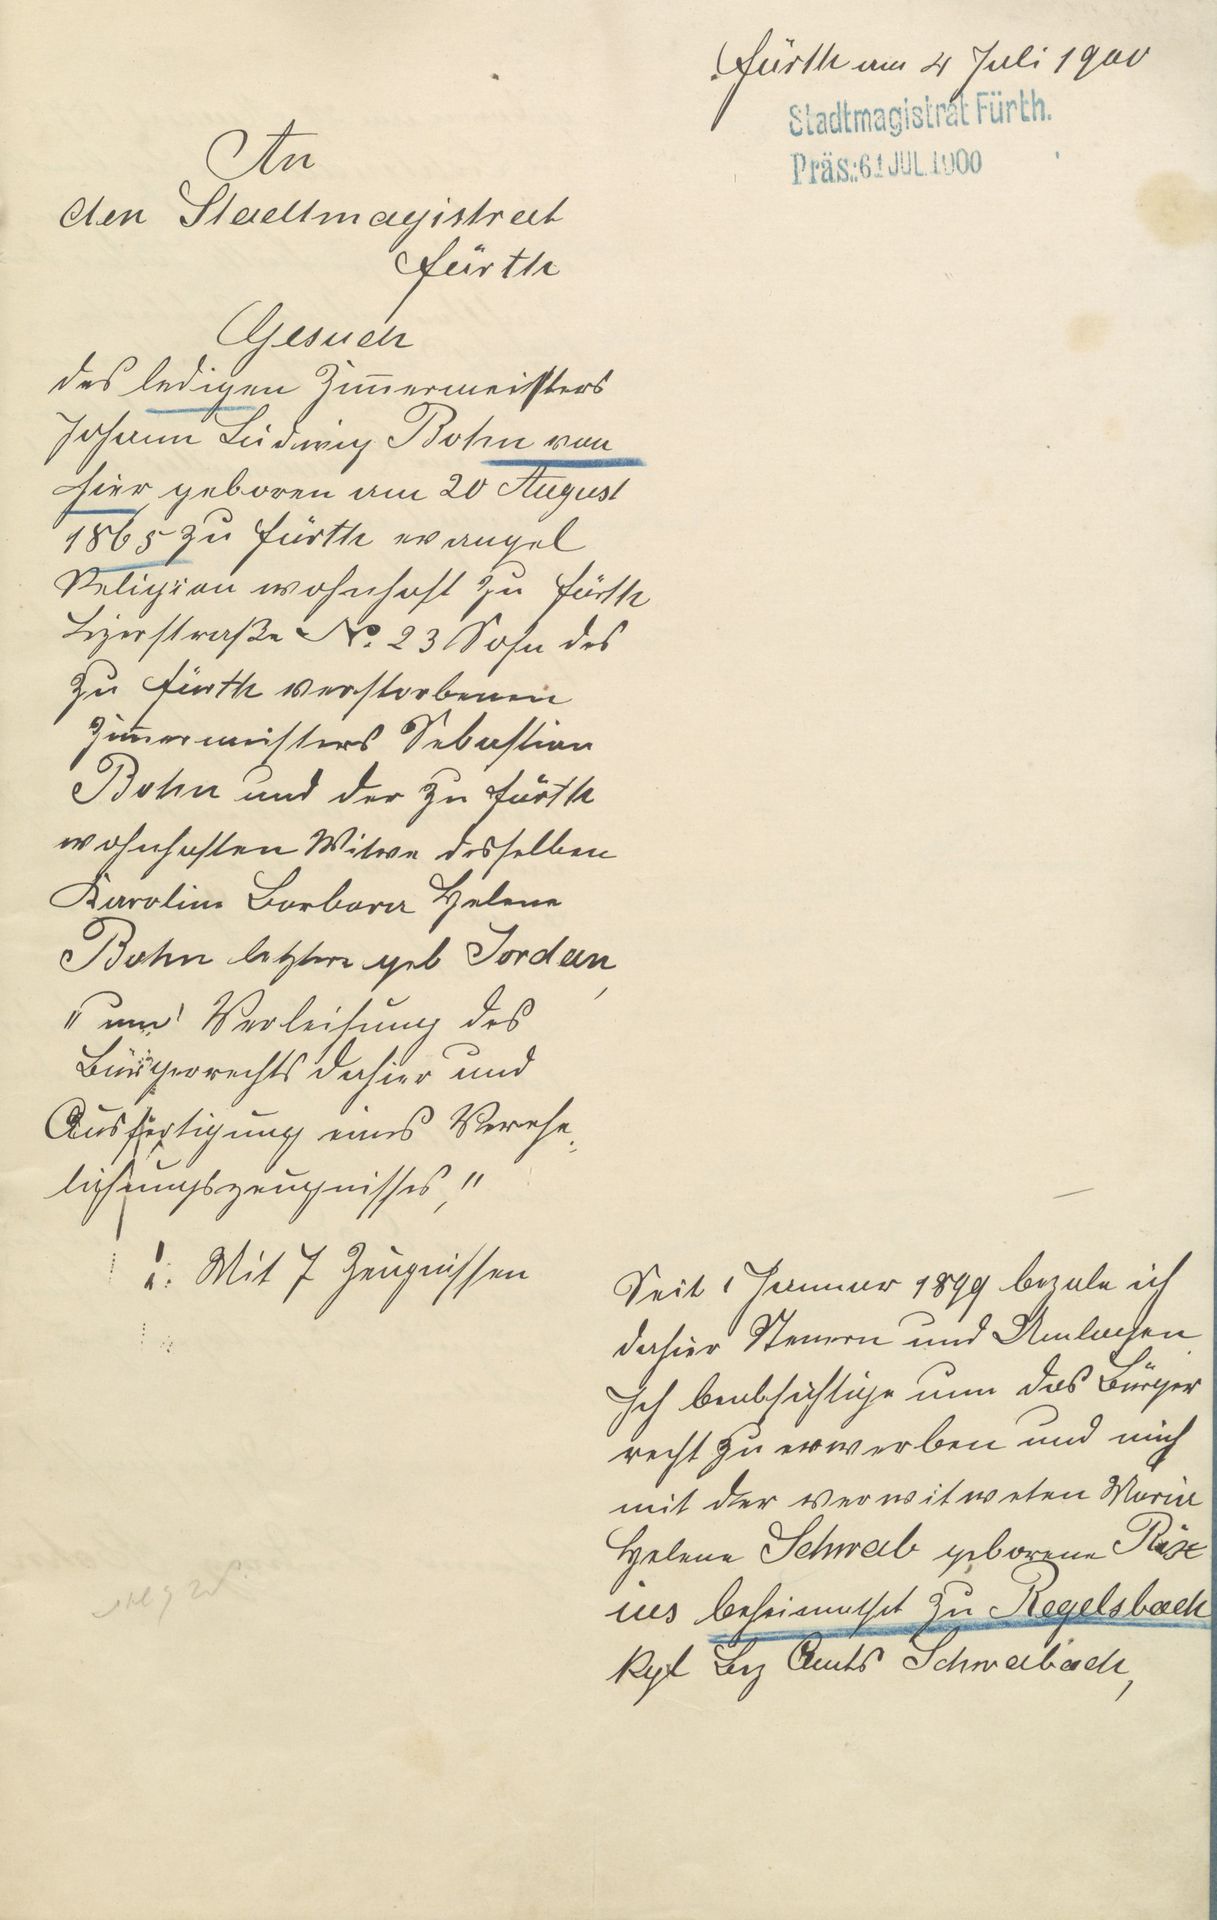 Fürth am 4 Juli 1900
Stadtmagistrat Fürth.
Präs.: 6 JUL.1900
An
den Stadtmagistrat
Fürth
Gesuch
des ledigen Zim̅ermeisters
Johann Ludwig Bohn von
hier, geboren am 20 August
1865 zu Fürth evangel
Religion wohnhaft zu Fürth
straße No. 23 Sohn des
zu Fürth verstorbenen
Zim̅ermeisters Sebastian
Bohn und der zu Fürth
wohnhaften Witwe desselben
Karolina Barbara Helene
Bohn letztere geb Jordan,
"um" Verleihung des
Bürgerrechts dahier und
Ausfertigung eines Verehe
lichungszeugnisses,"
Mit 7 Zeugnissen
Seit 1 Januar 1899 bezale ich
dahier Steuern und Umlagen
Ich beabsichtige nun das Bürger
recht zu erwerben und mich
mit der verwitweten Maria
Helena Schwab geborene Rix
ius beheimathet zu Regelsbach
kgl Bez Amts Schwabach,